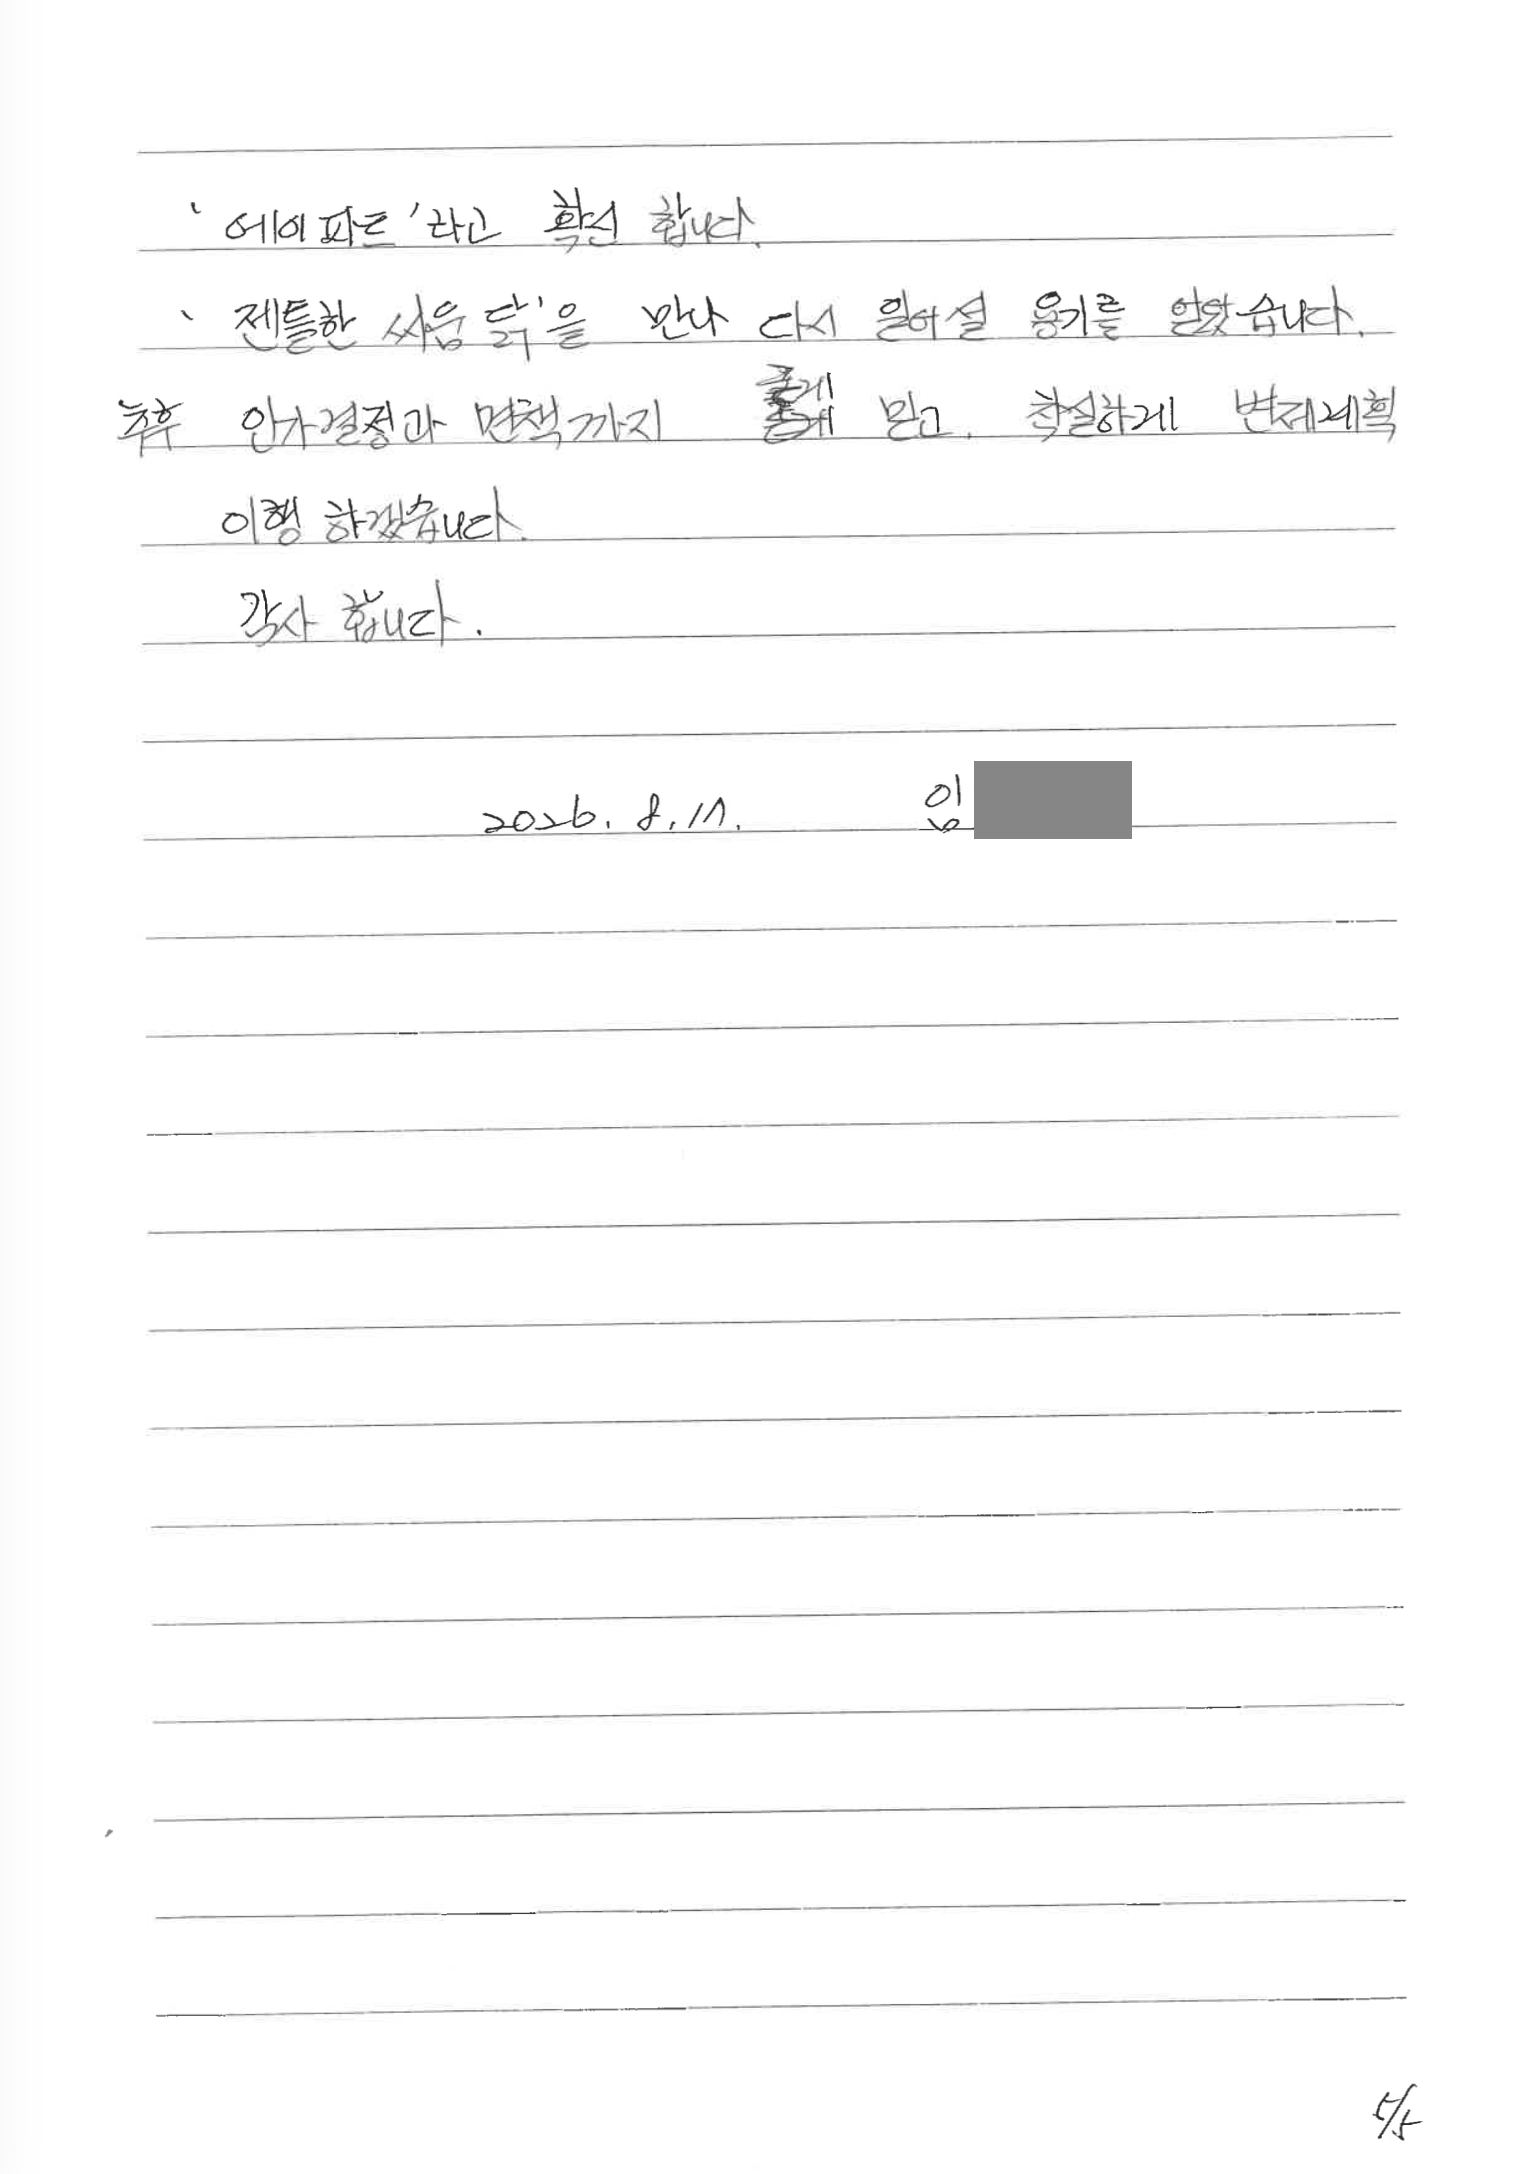 ‘에이파트’라고 확신 합니다.
‘젠틀한 싸움닭’을 만나 다시 일어설 용기를 얻었습니다.
추후 인가결정과 면책까지 믿고, 착실하게 변제계획
이행 하겠습니다.
감사 합니다.
2026. 8. 17. 임
5/5